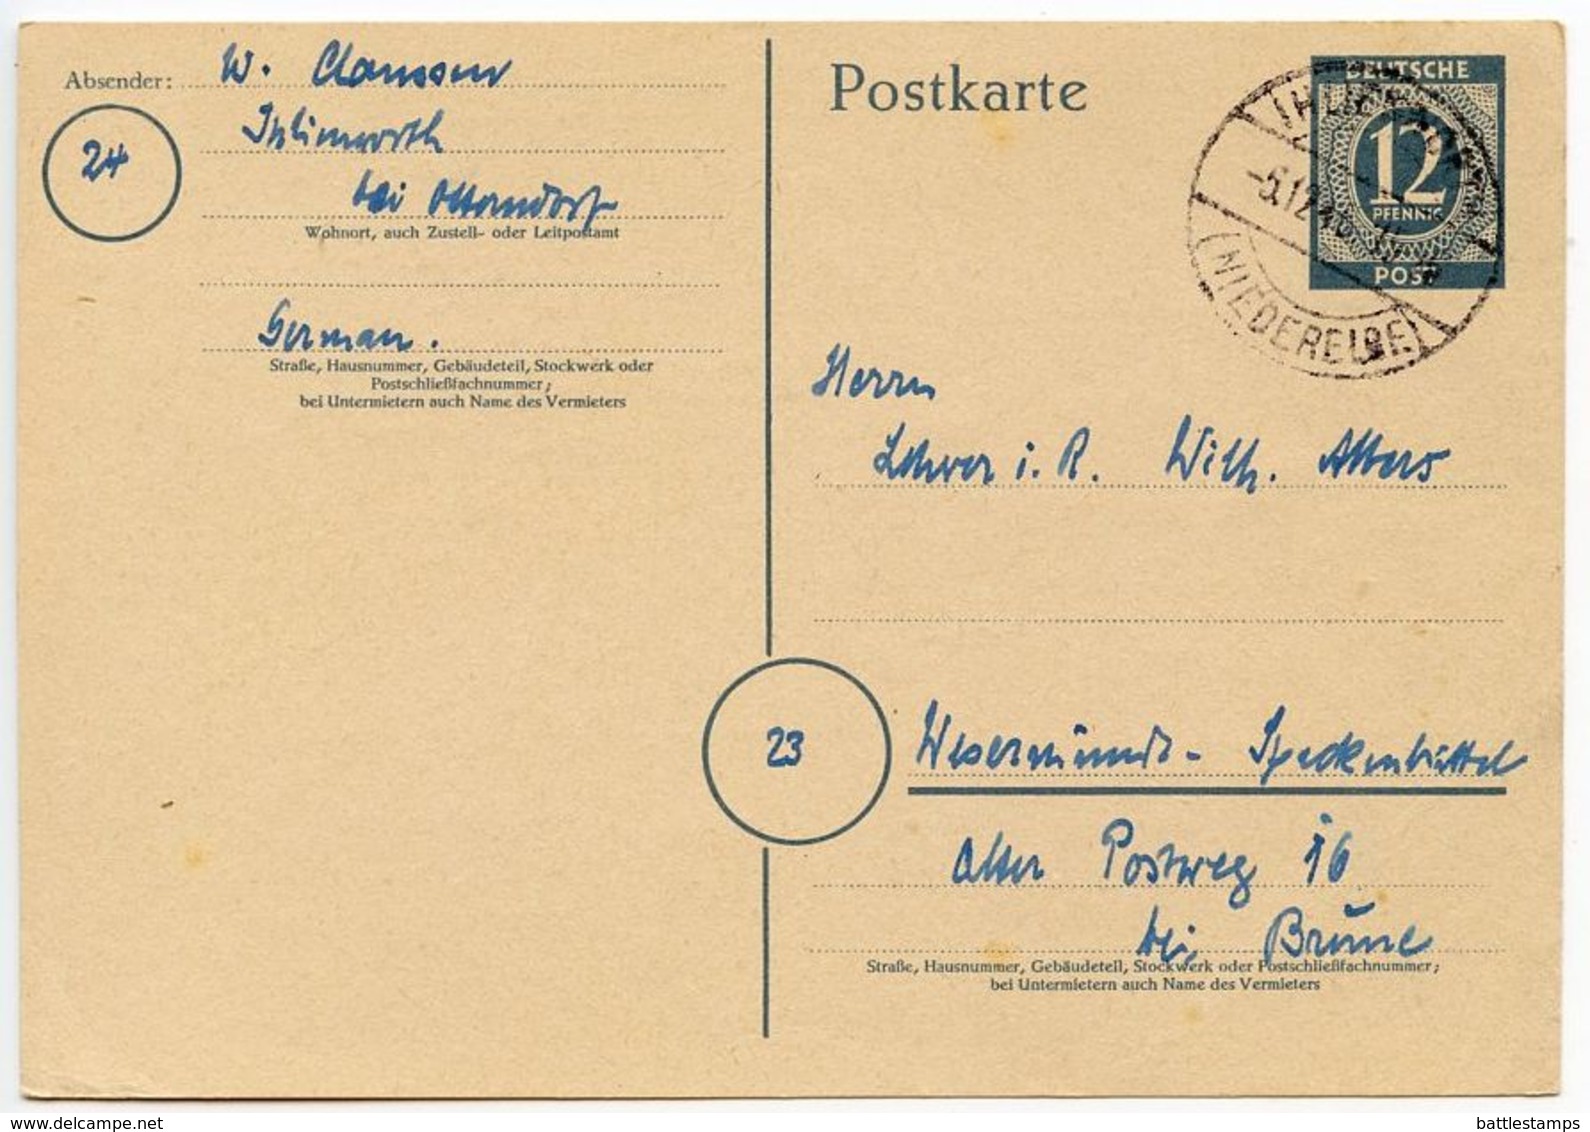 Absender: W. Claussen
24
Ihlienworth
bei Otterndorf
Wohnort, auch Zustell- oder Leitpostamt
German.
Straße, Hausnummer, Gebäudeteil, Stockwerk oder
Postschließfachnummer;
bei Untermietern auch Name des Vermieters
Postkarte
DEUTSCHE
12
PFENNIG
POST
IHLIENWORTH
-5.12.46.
(NIEDERELBE)
Herrn
Lehrer i. R. Wilh. Albers
23
Wesermünde - Speckenbüttel
Alter Postweg 16
bei Brüne
Straße, Hausnummer, Gebäudeteil, Stockwerk oder Postschließfachnummer;
bei Untermietern auch Name des Vermieters
delcampe.net
battlestamps